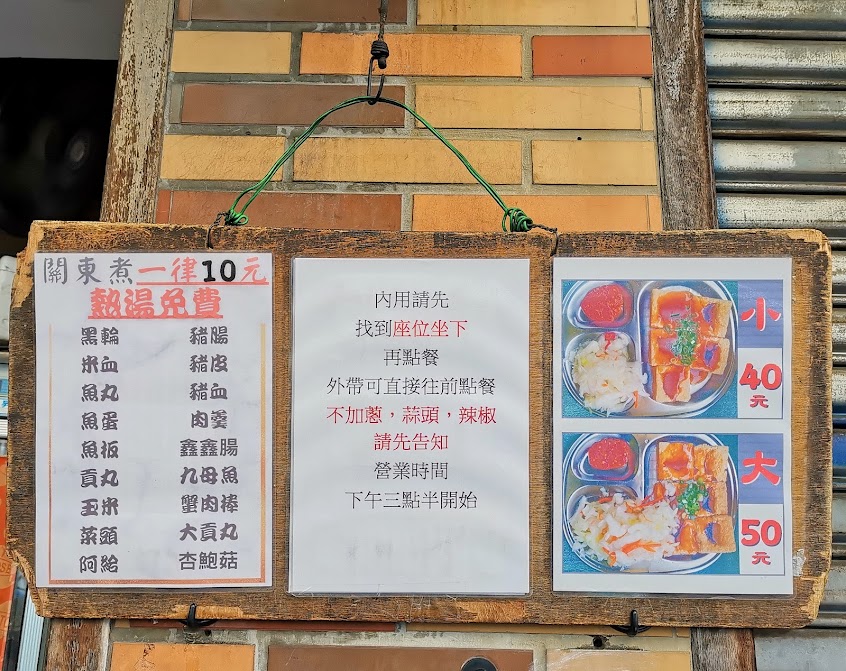 關東煮一律10元
熱湯免費
黑輪 豬腸
米血 豬皮
魚丸 豬血
魚蛋 肉羹
魚板 鑫鑫腸
貢丸 九母魚
玉米 蟹肉棒
菜頭 大貢丸
阿給 杏鮑菇
內用請先
找到座位坐下
再點餐
外帶可直接往前點餐
不加蔥，蒜頭，辣椒
請先告知
營業時間
下午三點半開始
小
40
元
大
50
元